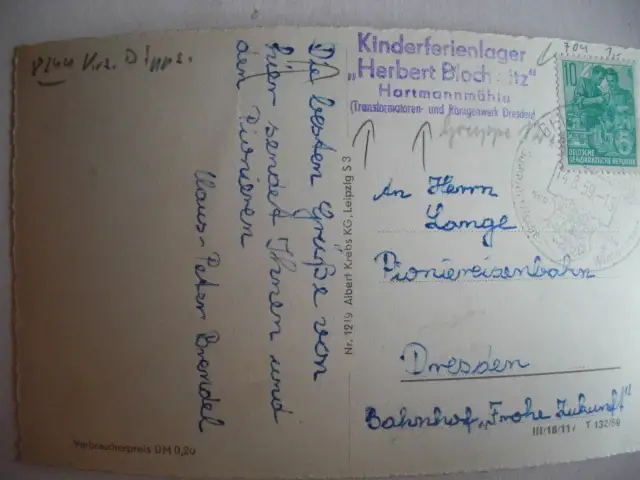 8244 Krs. Dipps.
Die besten Grüße von
hier sendet Ihnen und
den Pionieren
Klaus-Peter Brendel
Verbraucherpreis DM 0,20
Nr. 1219 Albert Krebs KG., Leipzig S 3
Kinderferienlager
„Herbert Bloch itz"
Hartmannmühle
(Transformatoren- und Röntgenwerk Dresden)
Gruppe
704
10
DEUTSCHE
DEMOKRATISCHE REPUBLIK
An Herrn
Lange
Pioniereisenbahn
Dresden
Bahnhof „Frohe Zukunft"
III/18/117 T 132/59